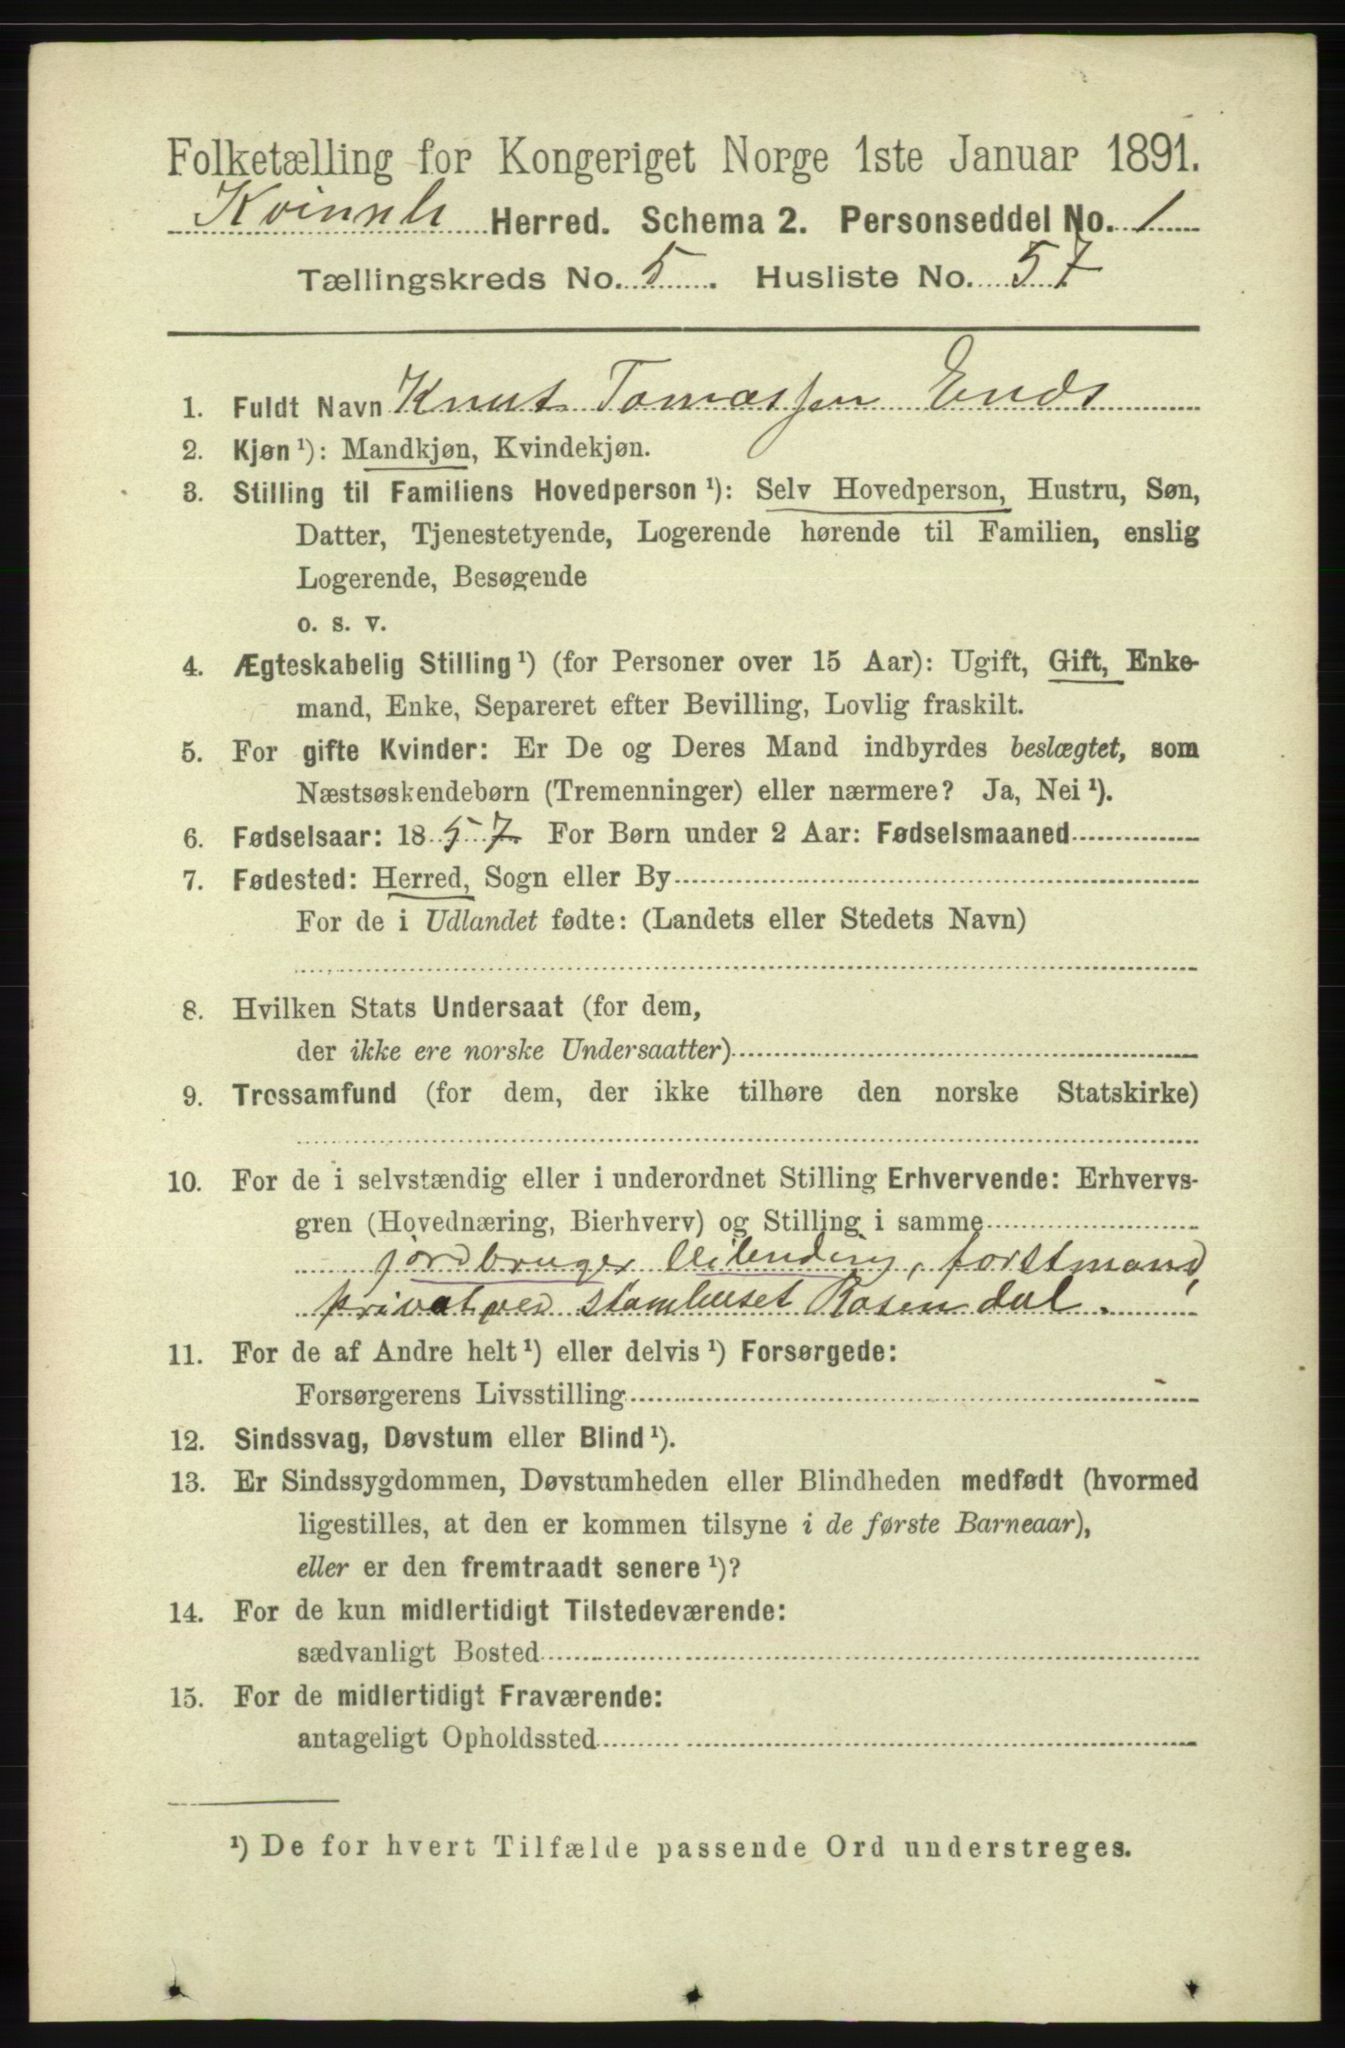 Folketælling for Kongeriget Norge 1ste Januar 1891.
Kvinnh. Herred. Schema 2. Personseddel No. 1
Tællingskreds No. 5. Husliste No. 57
1. Fuldt Navn Knut Tomassen Ends
2. Kjøn¹): Mandkjøn, Kvindekjøn.
3. Stilling til Familiens Hovedperson¹): Selv Hovedperson, Hustru, Søn,
Datter, Tjenestetyende, Logerende hørende til Familien, enslig
Logerende, Besøgende
o. s. v.
4. Ægteskabelig Stilling¹) (for Personer over 15 Aar): Ugift, Gift, Enke-
mand, Enke, Separeret efter Bevilling, Lovlig fraskilt.
5. For gifte Kvinder: Er De og Deres Mand indbyrdes beslægtet, som
Næstsøskendebørn (Tremenninger) eller nærmere? Ja, Nei¹).
6. Fødselsaar: 1857. For Børn under 2 Aar: Fødselsmaaned
7. Fødested: Herred, Sogn eller By
For de i Udlandet fødte: (Landets eller Stedets Navn)
8. Hvilken Stats Undersaat (for dem,
der ikke ere norske Undersaatter)
9. Trossamfund (for dem, der ikke tilhøre den norske Statskirke)
10. For de i selvstændig eller i underordnet Stilling Erhvervende: Erhvervs-
gren (Hovednæring, Bierhverv) og Stilling i samme
jordbruger leilending, forstmand
privat ved stamhuset Rosendal.
11. For de af Andre helt¹) eller delvis¹) Forsørgede:
Forsørgerens Livsstilling
12. Sindssvag, Døvstum eller Blind¹).
13. Er Sindssygdommen, Døvstumheden eller Blindheden medfødt (hvormed
ligestilles, at den er kommen tilsyne i de første Barneaar),
eller er den fremtraadt senere¹)?
14. For de kun midlertidigt Tilstedeværende:
sædvanligt Bosted
15. For de midlertidigt Fraværende:
antageligt Opholdssted
¹) De for hvert Tilfælde passende Ord understreges.